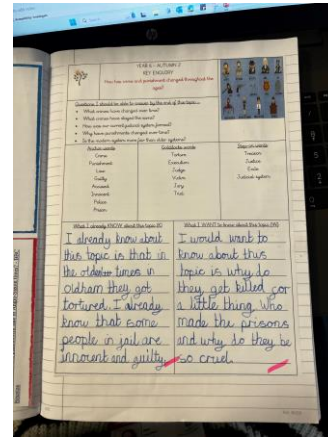 YEAR 6 - AUTUMN 2
KEY ENQUIRY
How has crime and punishment changed throughout the ages?
Questions I should be able to answer by the end of this topic...
What crimes have changed over time?
What crimes have stayed the same?
How was our current judicial system formed?
Why have punishments changed over time?
Is the modern system more fair than older systems?
Anchor words
Goldilocks words
Step-on words
Crime
Torture
Treason
Punishment
Execution
Justice
Law
Judge
Exile
Guilty
Victim
Judicial system
Accused
Jury
Innocent
Trial
Police
Prison
What I already KNOW about this topic (K)
I already know about
this topic is that in
the olden times in
oldham they got
tortured. I already
know that some
people in jail are
innocent and guilty.
What I WANT to know about this topic (W)
I would want to
know about this
topic is why do
they get killed for
a little thing. Who
made the prisons
and why do they be
so cruel.